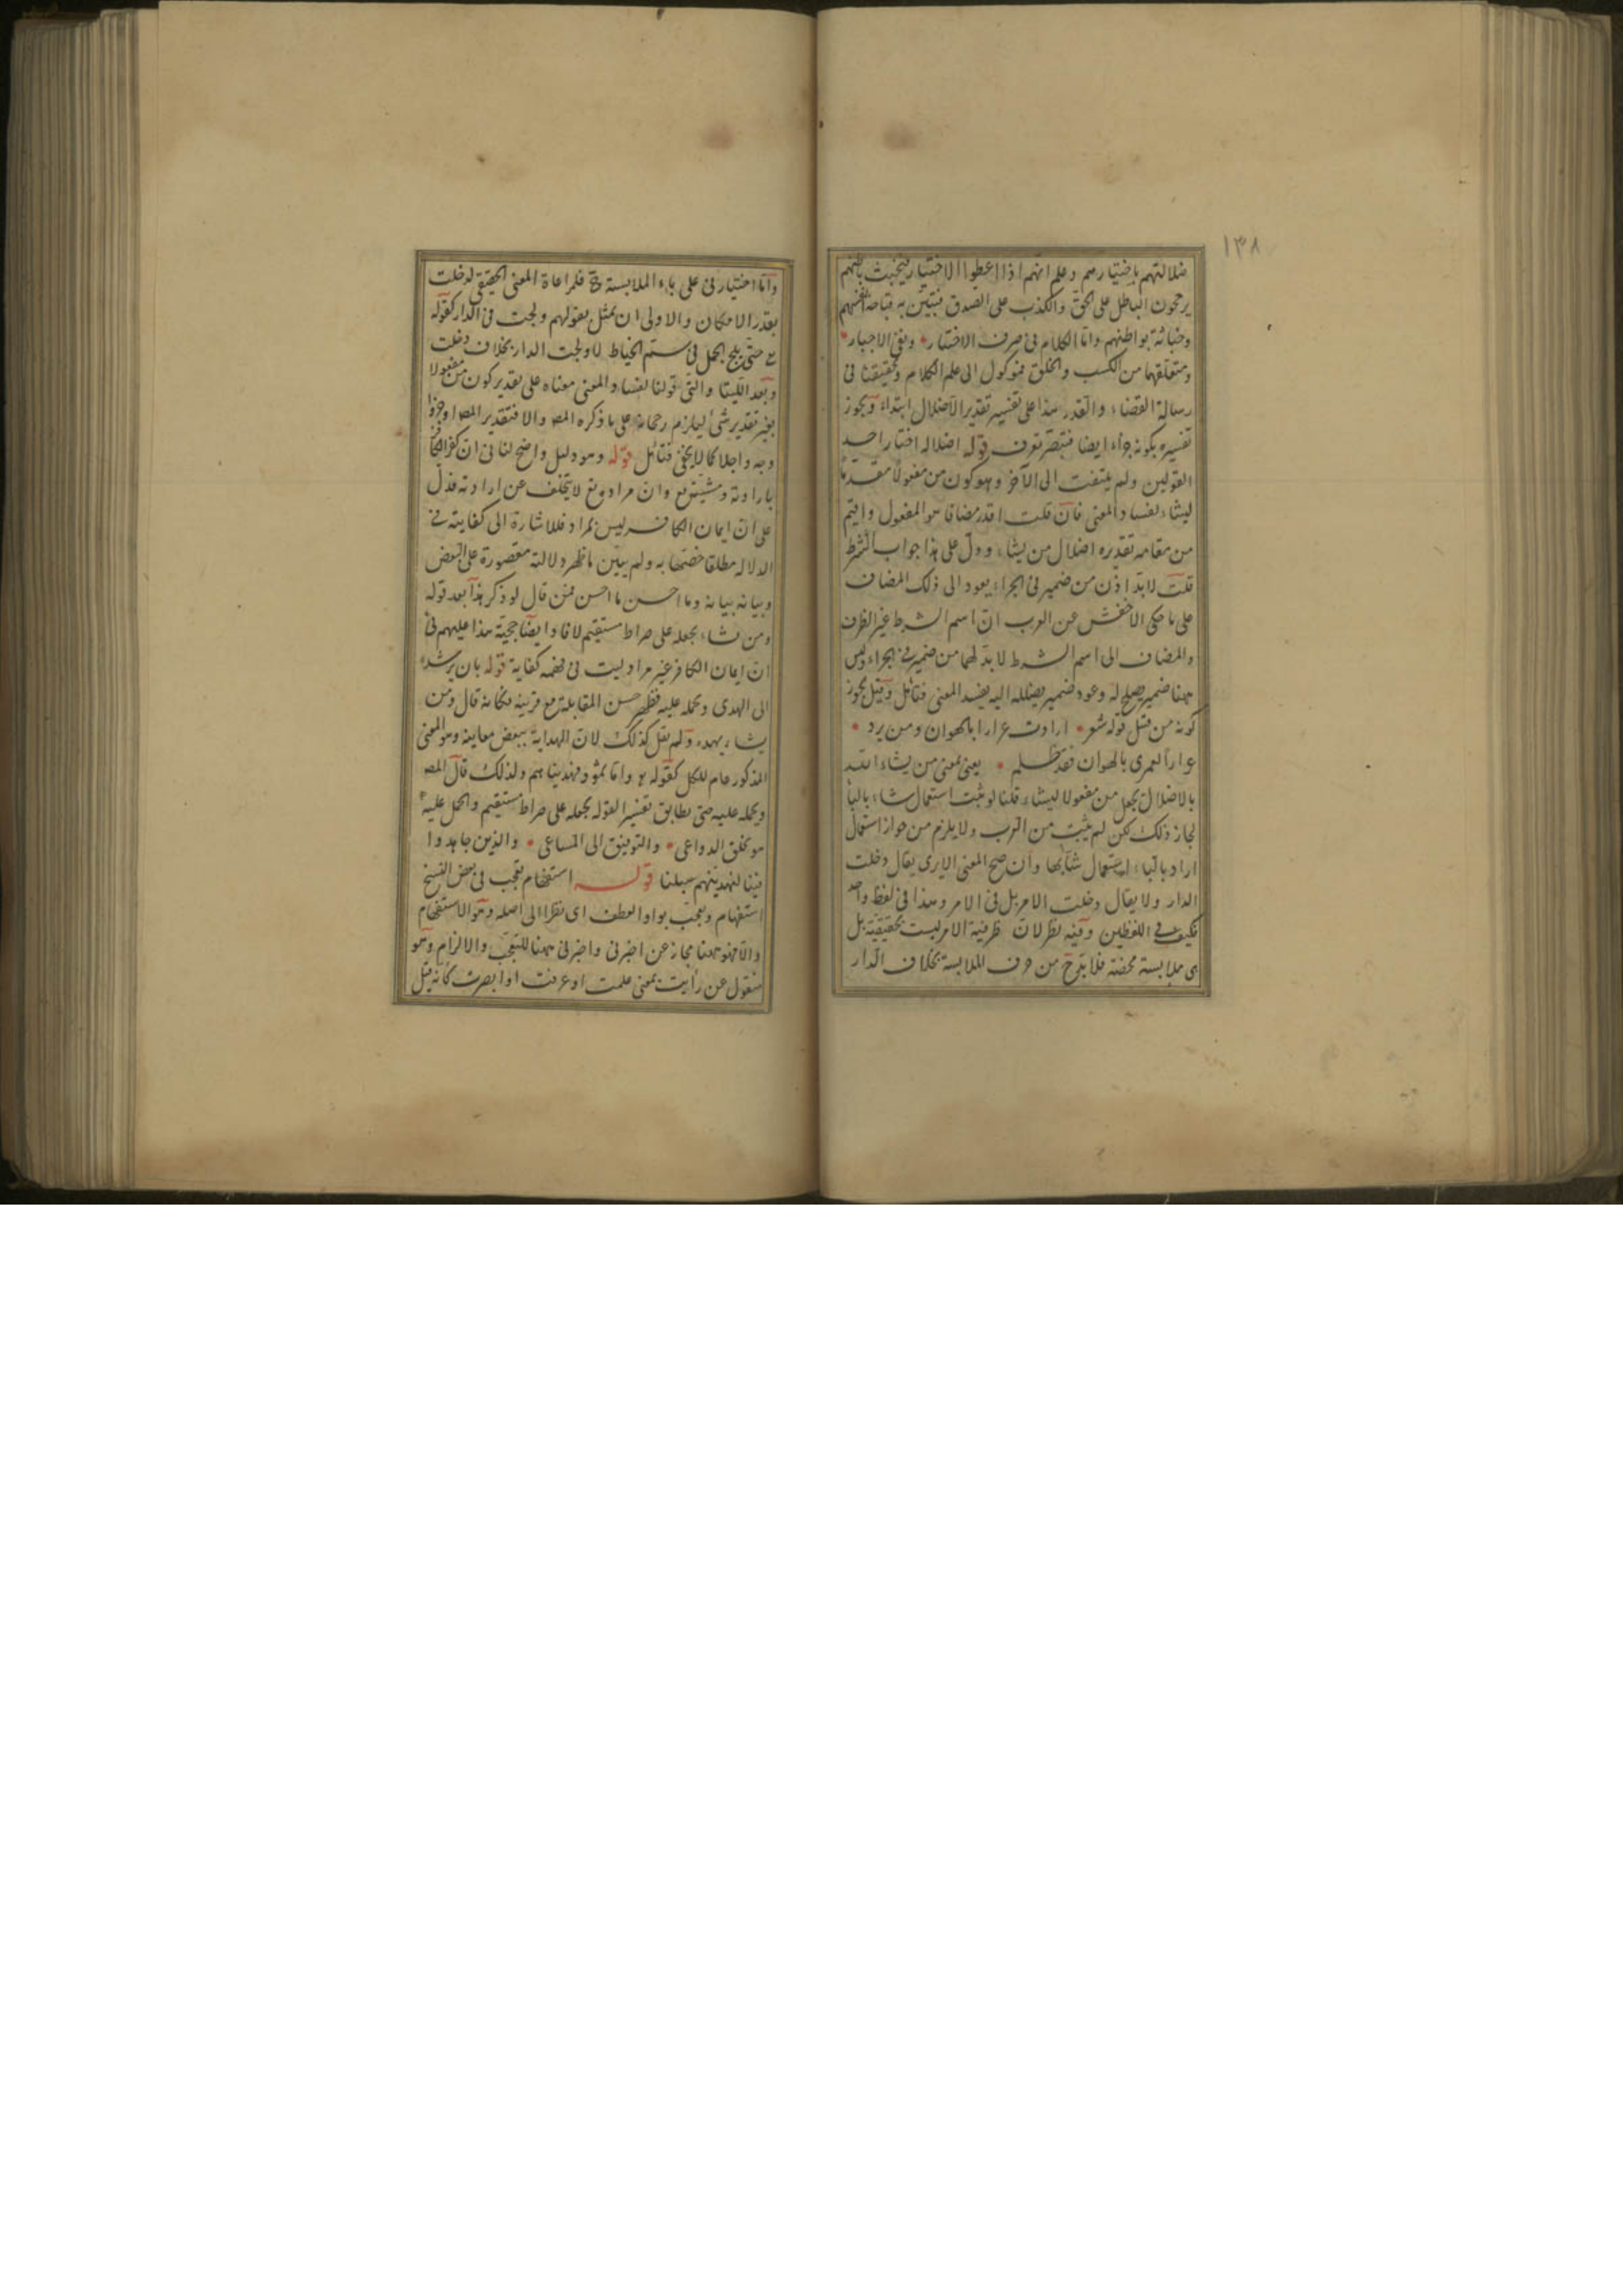 ١٣٨
ضلالتهم باختيارهم وعلم انهم اذا اعطوا الاختيار فيخبث باطنهم
يرجحون الباطل على الحق والكذب على الصدق فيتبين به قباحة انفسهم
وخباثة بواطنهم وامّا الكلام فى صرف الاختيار ونفى الاجبار
ومتعلقهما من الكسب والخلق فموكول الى علم الكلام وتحقيقنا فى
رسالة القضاء والقدر هذا على تفسيره تقدير الاضلال ابتداء ويجوز
تفسيره بكونه جزاء ايضا فتبصر تعرف قوله اضلاله اختار احد
القولين ولم يلتفت الى الآخر وهو كون من مفعولا مقدما
ليشاء لفساد المعنى فان قلت اقدر مضافا هو المفعول واقيم
من مقامه تقديره اضلال من يشاء ودل على هذا جواب الشرط
قلت لا بد اذن من ضمير فى الجزاء يعود الى ذلك المضاف
على ما حكى الاخفش عن العرب ان اسم الشرط غير الظرف
والمضاف الى اسم الشرط لا بد لهما من ضمير فى الجزاء وليس
ههنا ضمير يصلح له وعود ضمير يضلله اليه يفسد المعنى فتأمل وقيل يجوز
كونه من قبيل قوله شعر ارادت عرارا بالهوان ومن يرد
عرارا لعمرى بالهوان فقد ظلم يعنى بمعنى من يشاء الله
بالاضلال بجعل من مفعولا ليشاء قلنا لو ثبت استعمال شاء بالباء
لجاز ذلك لكن لم يثبت من العرب ولا يلزم من جواز استعمال
اراد بالباء استعمال شاء بها وان صح المعنى الا يرى يقال دخلت
الدار ولا يقال دخلت الامر بل فى الامر وهذا فى لفظ واحد
فكيف فى اللفظين وفيه نظر لان ظرفية الامر ليست بحقيقية بل
هى ملابسة محضة فلا بد ح من حرف الملابسة بخلاف الدار
وامّا اختيار فى على باء الملابسة ح فلمراعاة المعنى الحقيقى لدخلت
بقدر الامكان والاولى ان يمثل بقولهم ولجت فى الدار كقوله
تع حتى يلج الجمل فى سم الخياط لا ولجت الدار بخلاف دخلت
وبعد اللتيا والتى قولنا لفساد المعنى معناه على تقدير كون من مفعولا
بغير تقدير شئ ليلزم رجحانه على ما ذكره المص والا فتقدير المص اوجز
وجه واجلا كما لا يخفى فتأمل قوله وهو دليل واضح لنا فى ان كفر الكافر
بارادته ومشيته تع وان مراده تع لا يتخلف عن ارادته فدل
على ان ايمان الكافر ليس بمراد فللاشارة الى كفايته فى
الدلالة مطلقا خصها به ولم يبين ما ظهر دلالته مقصورة على البعض
وبيانه بيانه وما احسن ما احسن فمن قال لو ذكر هذا بعد قوله
ومن يشاء يجعله على صراط مستقيم لافاد ايضا حجية هذا عليهم فى
ان ايمان الكافر غير مراد ليست فى فهمه كفاية قوله بان يرشده
الى الهدى ويحمله عليه فظهر حسن المقابلة مع قرينه فكانه قال ومن
يشاء يهده ولم يقل كذلك لان الهداية ببعض معاينه وهو المعنى
المذكور عام للكل كقوله واما ثمود فهديناهم ولذلك قال المص
ويحمله عليه حتى يطابق تفسير القوله يجعله على صراط مستقيم والحمل عليه
هو بخلق الدواعى والتوفيق الى المساعى والذين جاهدوا
فينا لنهدينهم سبلنا قوله استفهام تعجب فى بعض النسخ
استفهام وتعجب بواو العطف اى نظرا الى اصله وهو الاستفهام
والا فهو ههنا مجاز عن اخبرنى واخبرنى ههنا للتعجب والالزام وهو
منقول عن رأيت بمعنى علمت او عرفت او ابصرت كأنه قيل